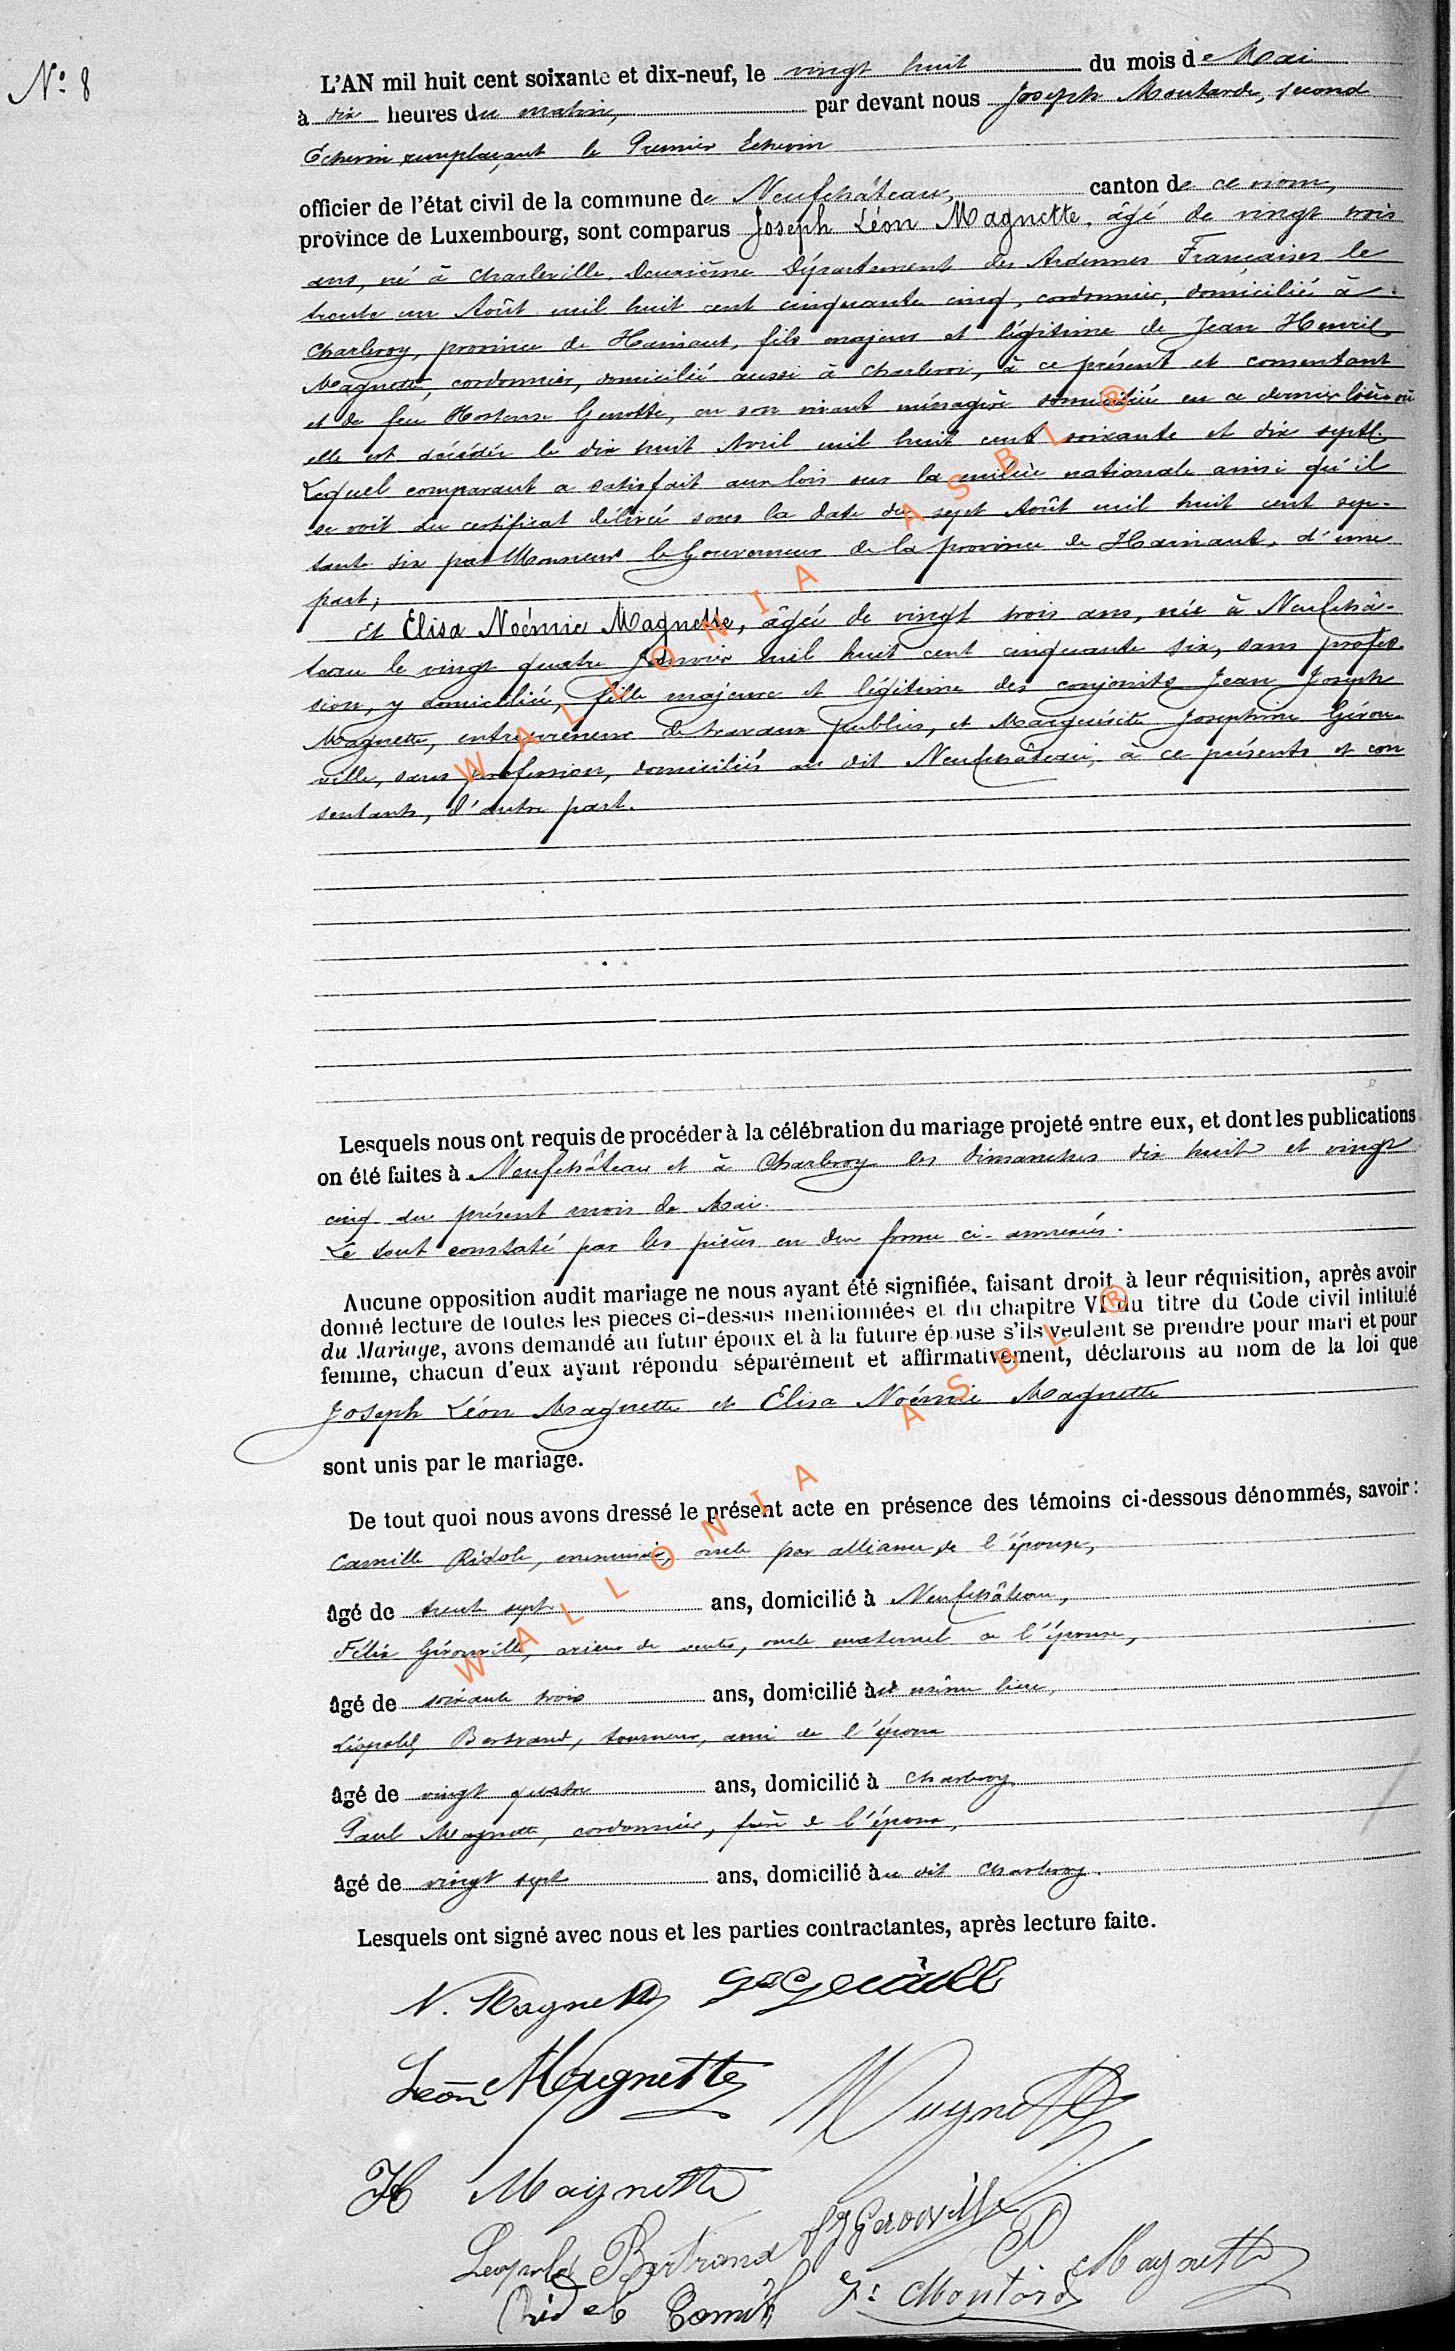 N° 8
L'AN mil huit cent soixante et dix-neuf, le vingt huit du mois de Mai
à dix heures du matin, par devant nous Joseph Moutarde, second
Échevin remplaçant le Premier Echevin
officier de l'état civil de la commune de Neufchâteau, canton de ce nom,
province de Luxembourg, sont comparus Joseph Léon Magnette, âgé de vingt trois
ans, né à Charleville, Deuxième Département des Ardennes Françaises le
trente un Août mil huit cent cinquante cinq, cordonnier, domicilié à
Charleroy, province de Hainaut, fils majeur et légitime de Jean Henri
Magnette, cordonnier, domicilié aussi à Charleroi, à ce présent et consentant
et de feu Hortense Genotte, en son vivant ménagère domiciliée en ce dernier lieu où
elle est décédée le dix huit Avril mil huit cent soixante et dix sept.
Lequel comparant a satisfait aux lois sur la milice nationale ainsi qu'il
se voit du certificat délivré sous la date du sept Août mil huit cent sep-
tante six par Monsieur le Gouverneur de la province de Hainaut, d'une
part;
Et Elisa Noémie Magnette, âgée de vingt trois ans, née à Neufchâ-
teau le vingt quatre Janvier mil huit cent cinquante six, sans profes-
sion, y domiciliée, fille majeure et légitime des conjoints Jean Joseph
Magnette, entrepreneur de travaux publics, et Marguérite Josephine Gérou-
ville, sans profession, domiciliés au dit Neufchâteau, à ce présents et con
sentants, d'autre part.
Lesquels nous ont requis de procéder à la célébration du mariage projeté entre eux, et dont les publications
on été faites à Neufchâteau et à Charleroy les dimanches dix huit et vingt
cinq du présent mois de Mai.
Le tout constaté par les pièces en due forme ci-annexées.
Aucune opposition audit mariage ne nous ayant été signifiée, faisant droit à leur réquisition, après avoir
donné lecture de toutes les pièces ci-dessus mentionnées et du chapitre VI du titre du Code civil intitulé
du Mariage, avons demandé au futur époux et à la future épouse s'ils veulent se prendre pour mari et pour
femme, chacun d'eux ayant répondu séparément et affirmativement, déclarons au nom de la loi que
Joseph Léon Magnette et Elisa Noémie Magnette
sont unis par le mariage.
De tout quoi nous avons dressé le présent acte en présence des témoins ci-dessous dénommés, savoir :
Camille Ridole, menuisier, oncle par alliance de l'épouse,
âgé de trente sept ans, domicilié à Neufchâteau,
Félix Gérouville, oncle maternel de l'épouse,
âgé de soixante trois ans, domicilié au même lieu,
Léopold Bertrand, tourneur, ami de l'époux
âgé de vingt quatre ans, domicilié à Charleroy
Paul Magnette, cordonnier, frère de l'époux,
âgé de vingt sept ans, domicilié au dit Charleroy.
Lesquels ont signé avec nous et les parties contractantes, après lecture faite.
N. Magnette
Léon Magnette
Magnette
H Magnette
Gerouville
Leopold Bertrand
P Magnette
Camille
WALLONIA ASBL ®
WALLONIA ASBL ®